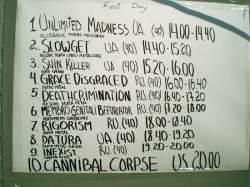 First Day
1. UNLIMITED MADNESS UA (40) 14.00-14.40
2. SLOWGET UA (40) 14.40-15.20
3. SKIN KILLER UA (40) 15.20-16.00
4. GRACE DISGRACED RU (40) 16.00-16.40
5. DEATHCRIMINATION RU (40) 16.40-17.20
6. MEMBRO GENITALI BEFURCATOR RU (40) 17.20-18.00
7. RIGORISM RU (40) 18.00-18.40
8. DATURA UA (40) 18.40-19.20
9. INEXIST RU (40) 19.20-20.00
10. CANNIBAL CORPSE US 20.00